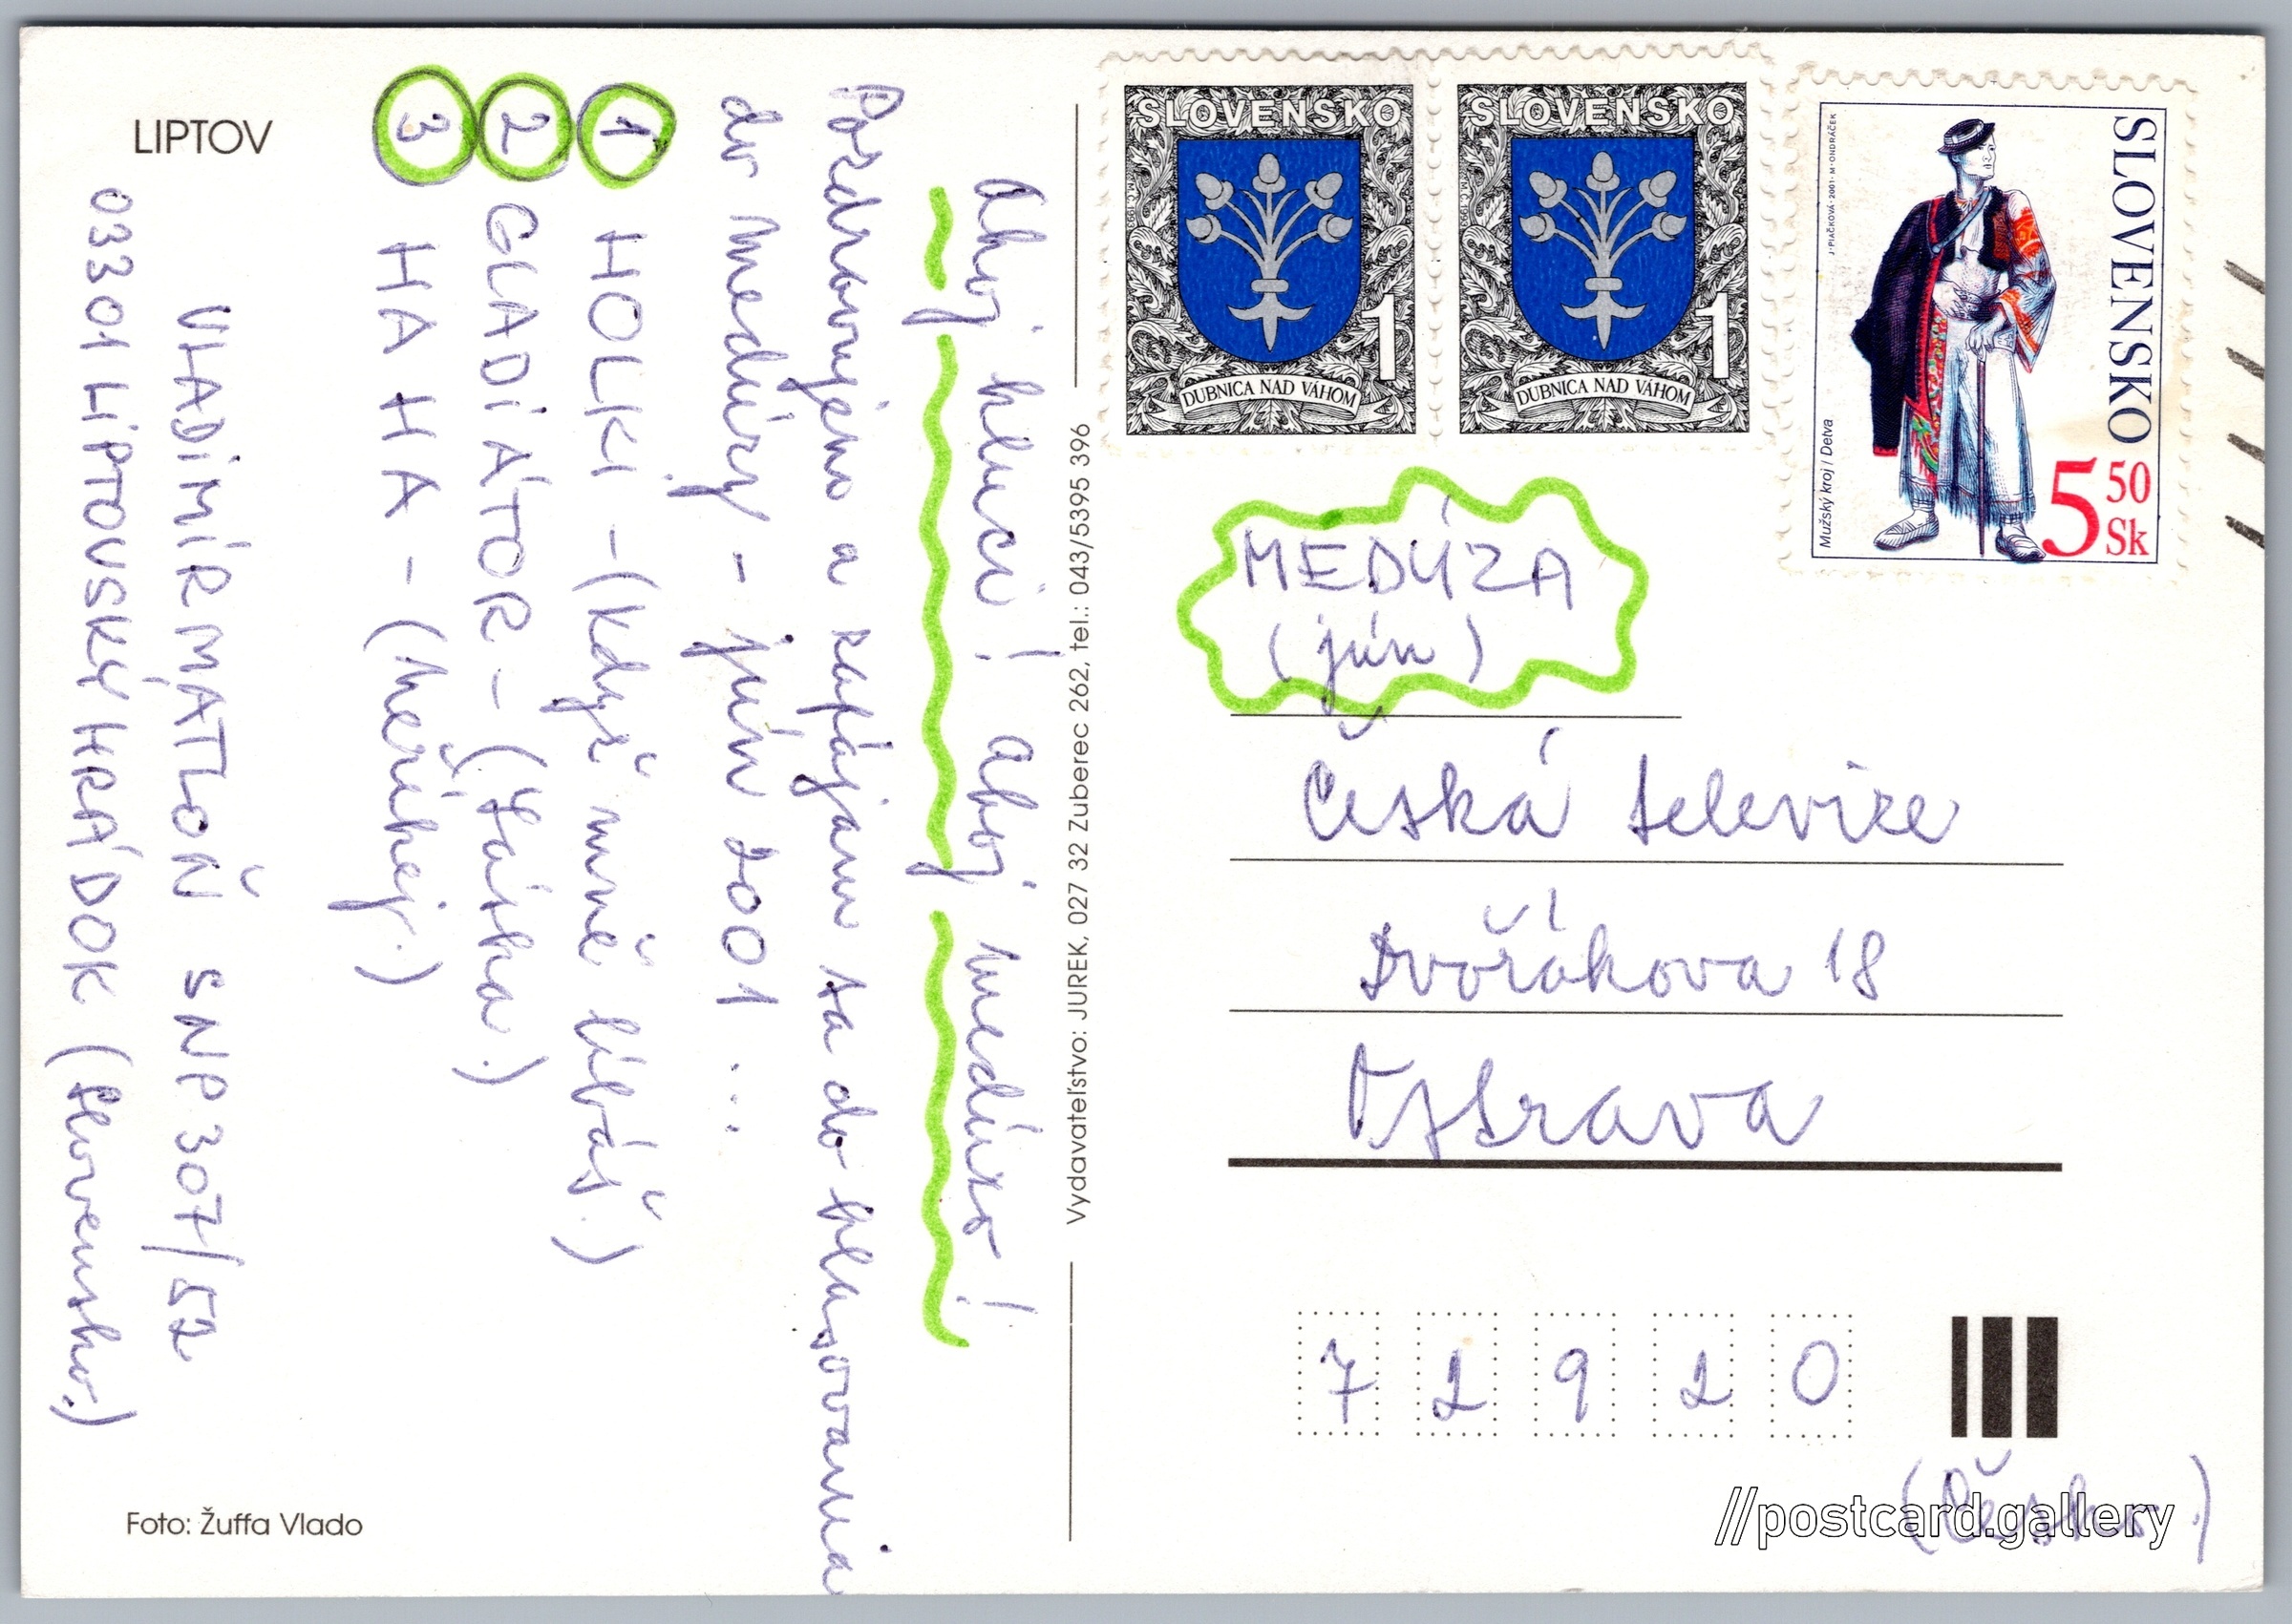 LIPTOV
Ahoj kluci! ahoj medúzo!
Pozdravujem a zapájam sa do hlasovania
do medúzy - jún 2001...
1 HOLKI - (Když mně líbáš.)
2 GLADIÁTOR - (Láska.)
3 HA HA - (Neříkej.)
VLADIMÍR MÁTLOŇ SNP 307/52
03301 LIPTOVSKÝ HRÁDOK (Slovensko.)
Foto: Žuffa Vlado
Vydavateľstvo: JUREK, 027 32 Zuberec 262, tel.: 043/5395 396
SLOVENSKO
1
DUBNICA NAD VÁHOM
SLOVENSKO
1
DUBNICA NAD VÁHOM
SLOVENSKO
5 50 Sk
Mužský kroj / Detva
J. PIAČKOVÁ · 2001 · M. ONDRÁČEK
MEDÚZA
(jún)
Česká televize
Dvořákova 18
Ostrava
7 2 9 2 0
(Česko.)
//postcard.gallery